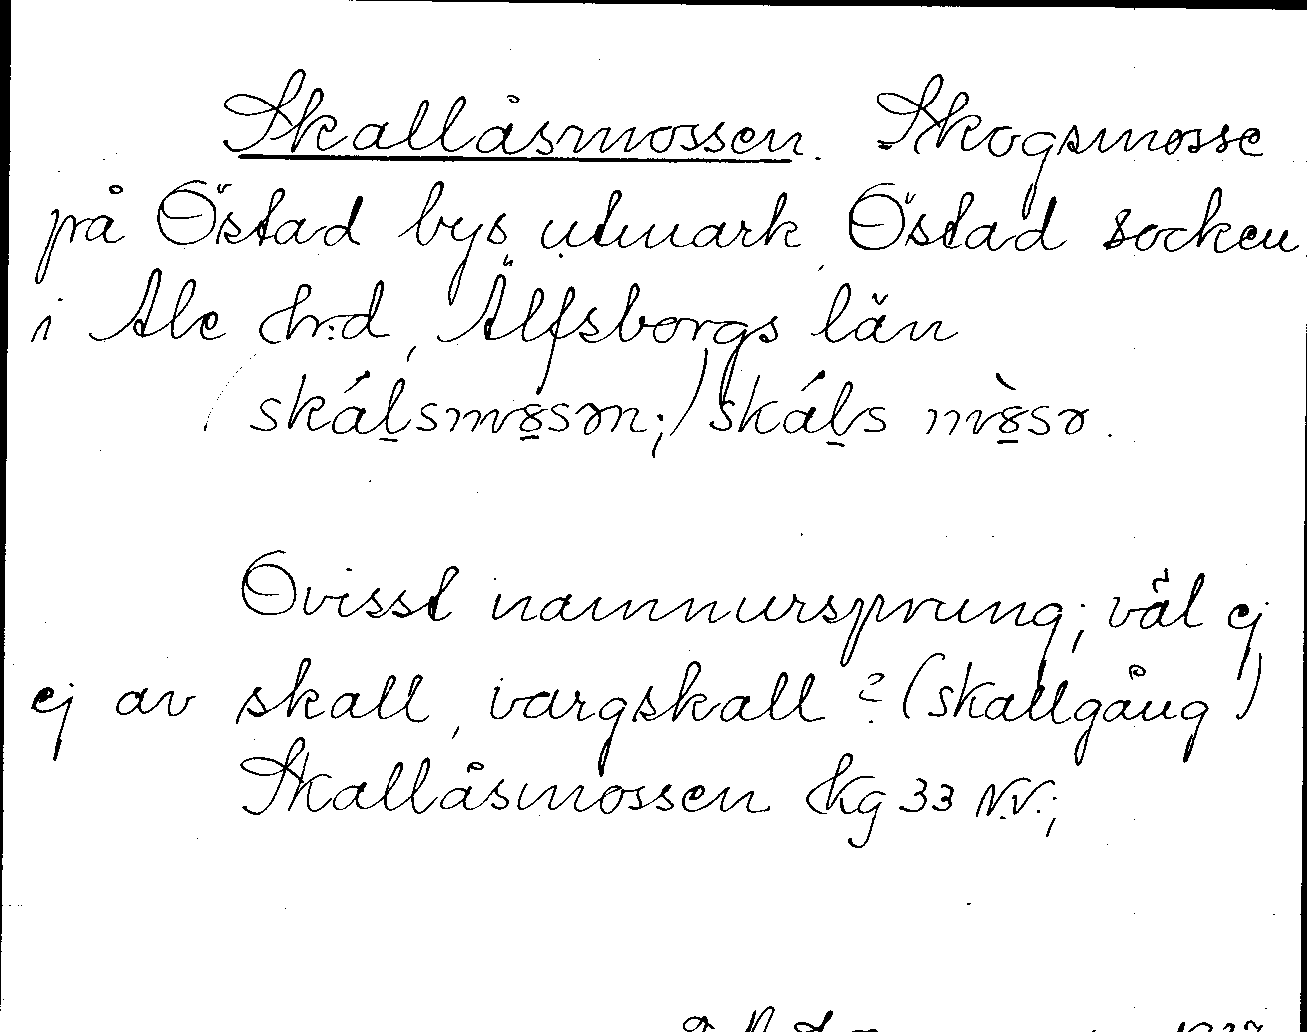 Skallåsmossen. Skogsmosse
på Östad bys utmark, Östad socken
i Ale hr:d, Älfsborgs län
(skálsmɷsɘn;) skáls mɷ̀sɘ.
Ovisst namnursprung; väl ej
ej av skall, vargskall? (skallgång)
Skallåsmossen Kg 33 N.V.;